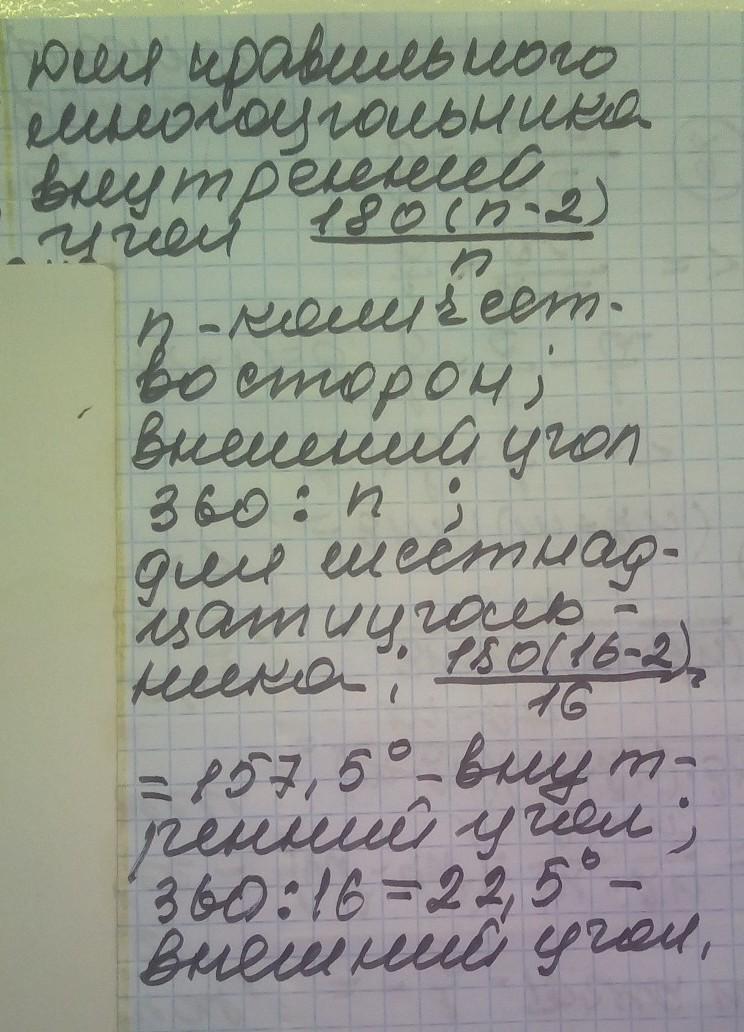 для правильного
многоугольника
внутренний
угол 180(n-2)
n
n - количест-
во сторон;
внешний угол
360 : n ;
для шестнад-
цатиуголь-
ника: 180(16-2)
16
= 157,5° - внут-
ренний угол;
360:16=22,5° -
внешний угол.